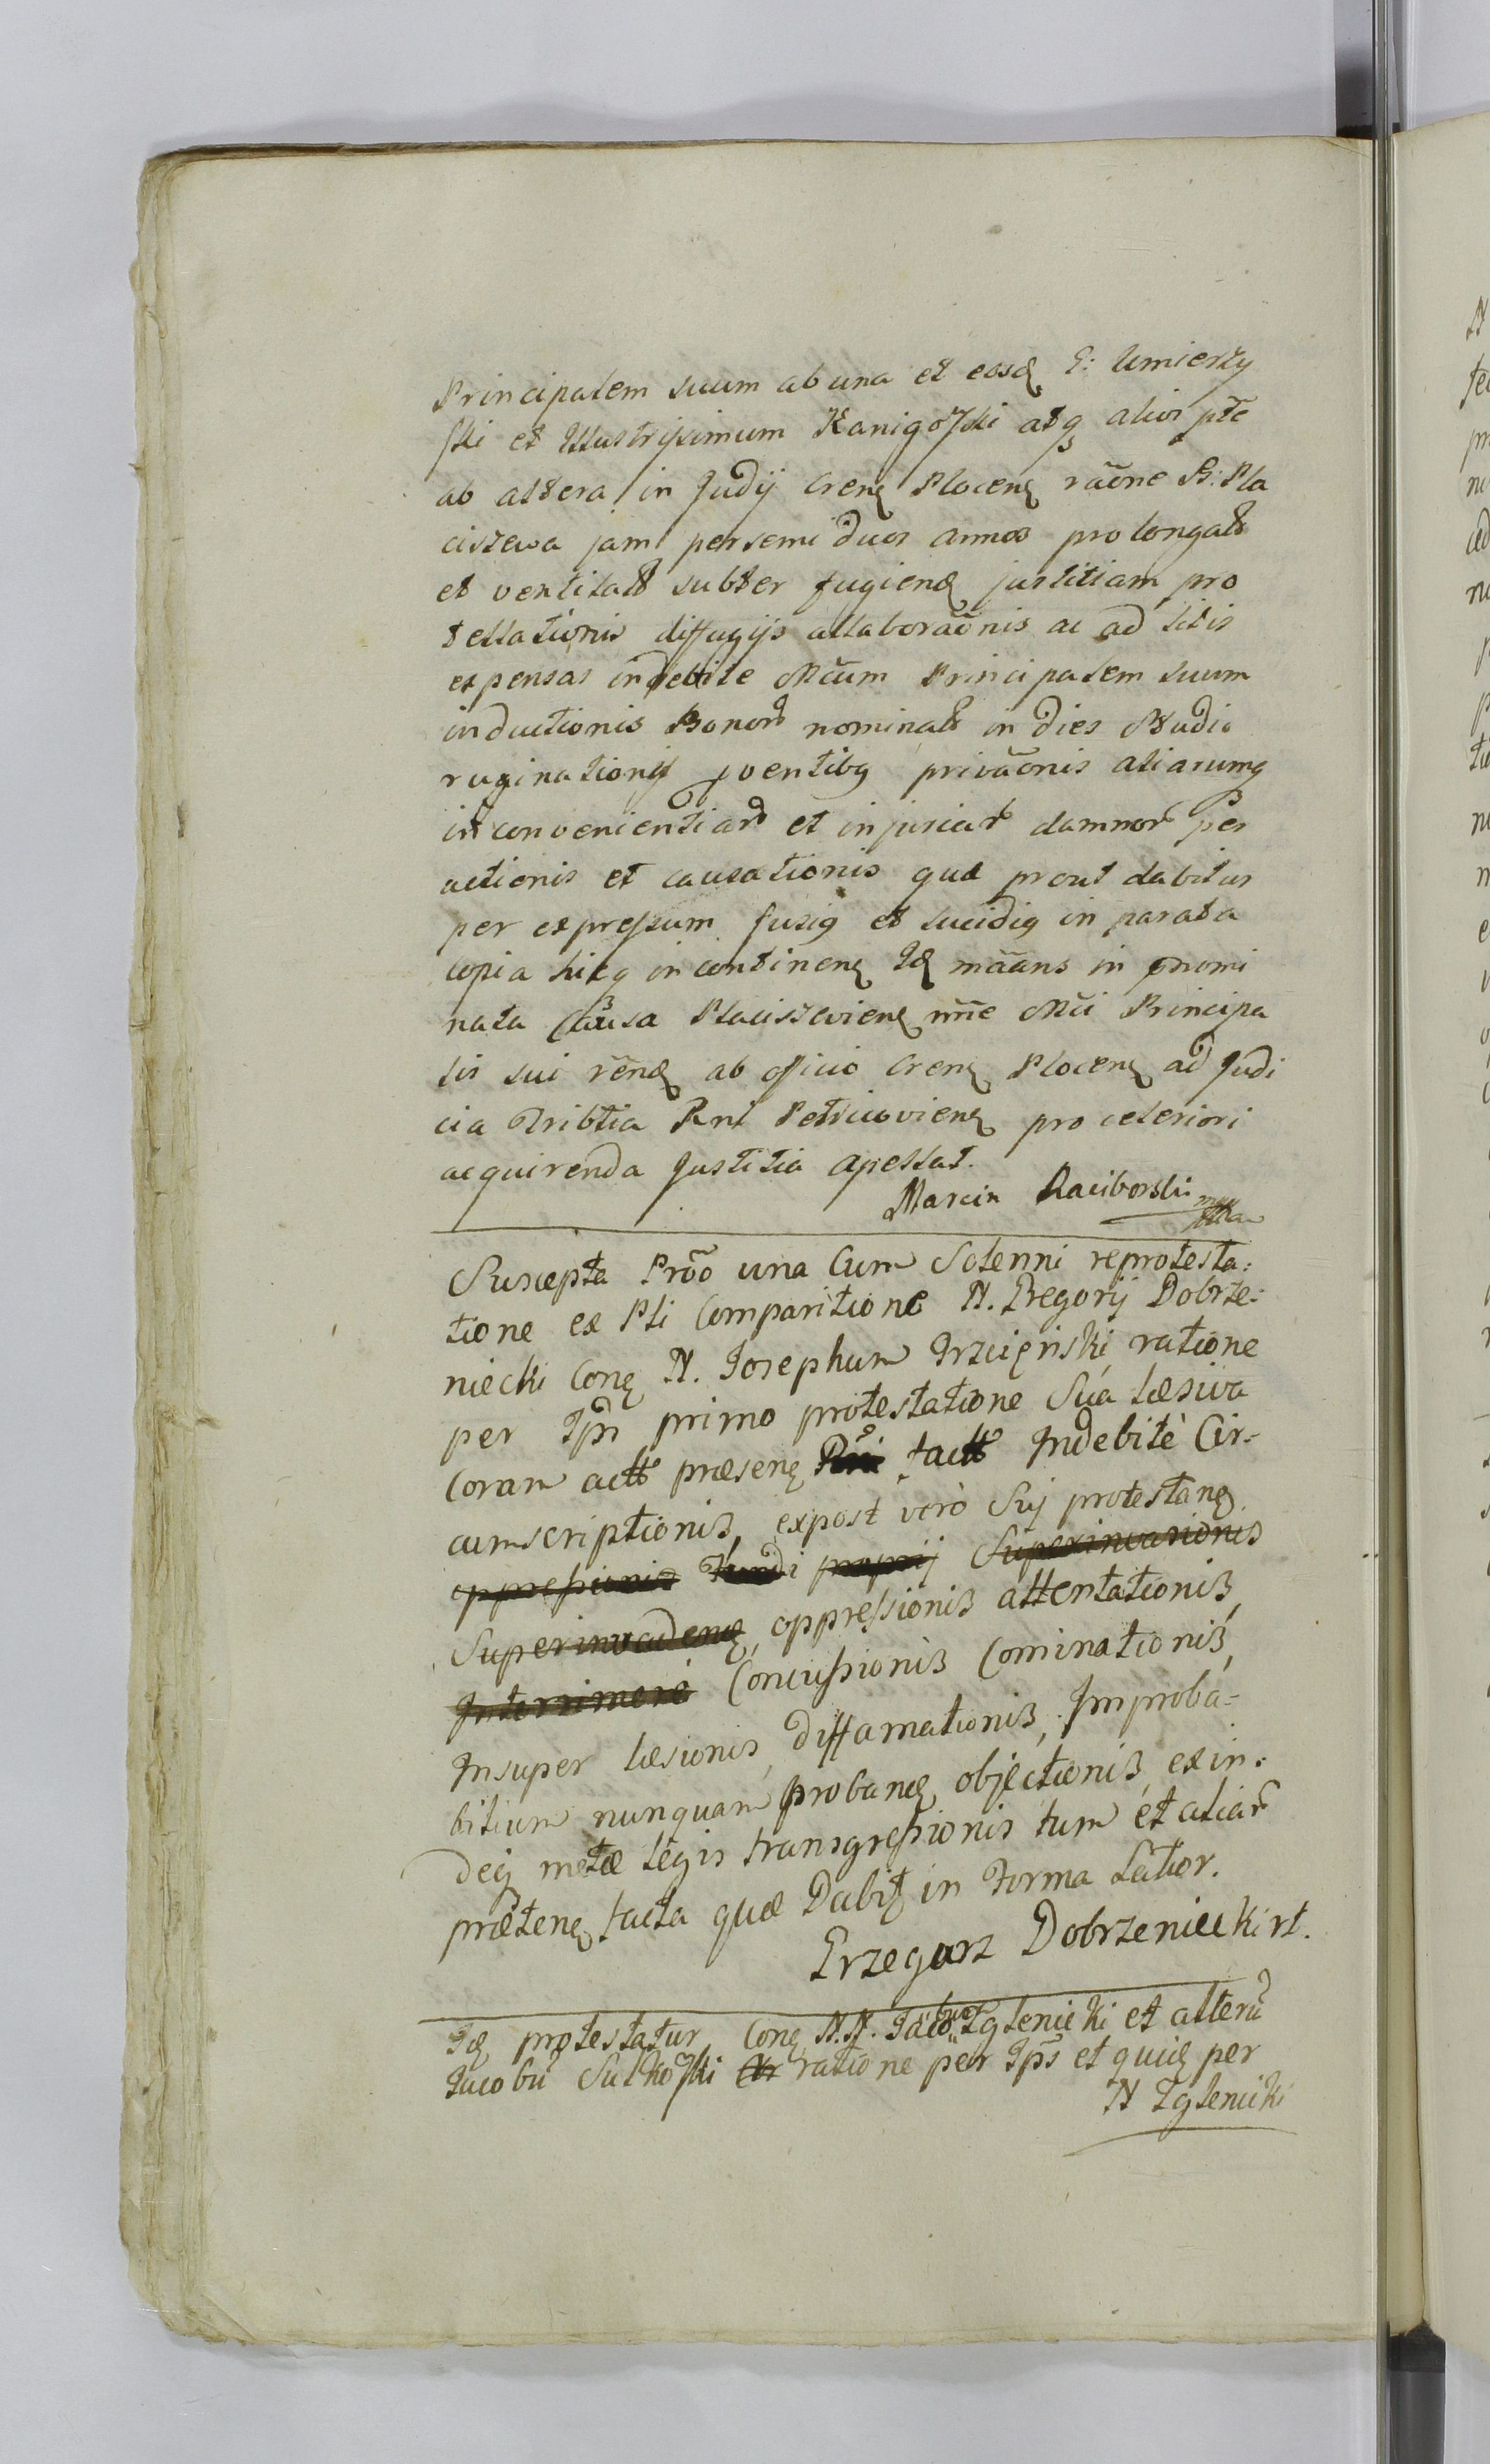 Principalem suum ab una et eosq G: Umierzy
ski et Illustrissimum Kanigowski atq alios pte
ab altera in Judij Crens Plocens raõne B: Pla
ciszewa jam per semi duos annos prolongatt
et ventilatt subter fugiend justitiam pro
tellationis diffugijs allaboraõnis ac ad litis
expensas indebite Mcum Principalem suum
inductionis Bonorũ nominatt in dies Studio
ruginationis proventibq privaõnis aliarumq
inconvenientiarũ et injuriarũ damnorũ per
actionis et causationis quæ prout dabitur
per expressum fusiq et lucidiq in parata
copia hicq in continens Id mãans in pnomi
nata Causa Placiszeviens nne Mci Principa
lis sui rend ab officio Crens Plocens ad Judi
cia Tribtia Rni Petricoviens pro celeriori
acquirenda Justitia apellat.
Marcin Raciborski mpp
Suscepta Proõ una Cum Solenni reprotesta:
tione ex Pti Comparitione N. Gregorij Dobrze:
niecki Conq N. Josephum Trzcinski ratione
per Ipm primo protestatione Sua læsiva
Coram actt præsens factt Indebitè Cir-
cumscriptionis, expost verò Suj protestans
oppressionis Fundi proprij Superinvasionis
Superinvadend, oppressionis attentationis,
Interimere Concussionis Cominationis,
Insuper læsionis, diffamationis, Improba-
bilium nunquam proband objectionis, exin-
deq metæ legis transgressionis tum et aliarũ
prætens facta quæ Dabit in Forma Latior.
Grzegorz Dobrzeniecki rt.
Id protestatur Conq N.N. Jacobum Zglenicki et alterũ
Jacobũ Sulkowski ratione per Ips et quid per
N Zglenicki